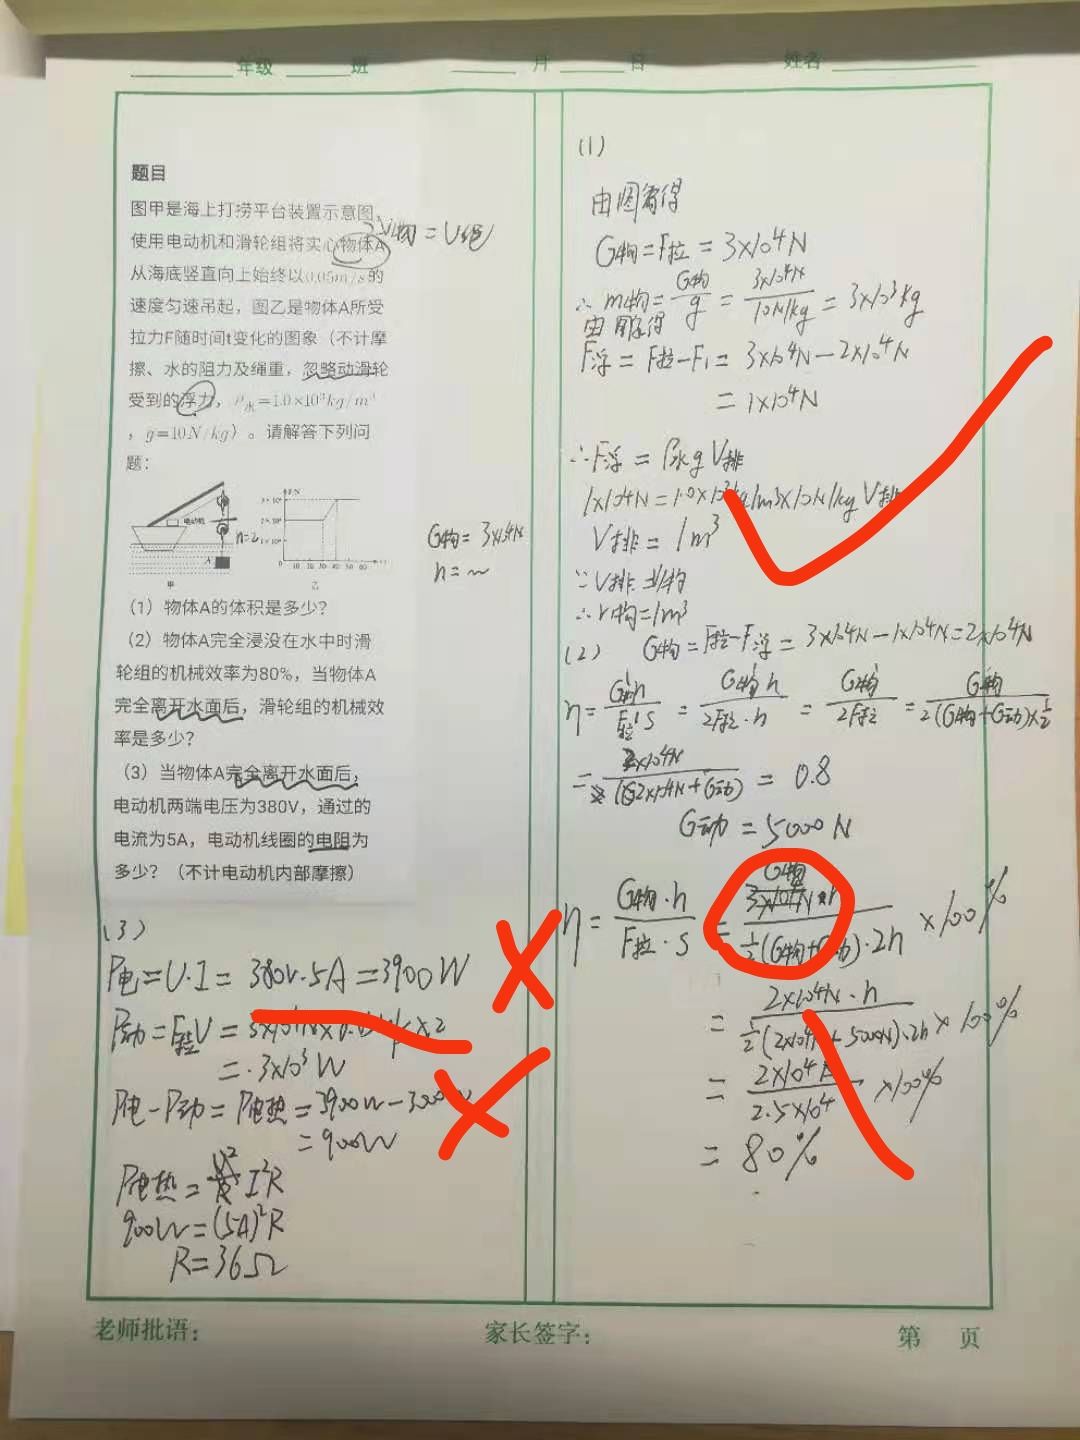 年级 班 月 日 姓名
题目
图甲是海上打捞平台装置示意图,
使用电动机和滑轮组将实心物体A
从海底竖直向上始终以0.05m/s的
速度匀速吊起，图乙是物体A所受
拉力F随时间t变化的图象（不计摩
擦、水的阻力及绳重，忽略动滑轮
受到的浮力，ρ水=1.0×10³kg/m³
，g=10N/kg）。请解答下列问
题：
电动机
n=2
A
甲
F/N
3×10⁴
2×10⁴
1×10⁴
0 10 20 30 40 50 60
乙
G物=3×10⁴N
（1）物体A的体积是多少？
（2）物体A完全浸没在水中时滑
轮组的机械效率为80%，当物体A
完全离开水面后，滑轮组的机械效
率是多少？
（3）当物体A完全离开水面后，
电动机两端电压为380V，通过的
电流为5A，电动机线圈的电阻为
多少？（不计电动机内部摩擦）
(3)
P电=U·I=380V·5A=3900W
P动=F拉V=
=3×10³W
P电-P动=P电热=3900W-3000W
=900W
P电热=I²R
900W=(5A)²R
R=36Ω
(1)
由图得
G物=F拉=3×10⁴N
∴m物=G物/g=3×10⁴N/10N/kg=3×10³kg
由图得
F浮=F拉-F1=3×10⁴N-2×10⁴N
=1×10⁴N
∴F浮=ρ水gV排
1×10⁴N=1.0×10³kg/m³×10N/kg V排
V排=1m³
∵V排=V物
∴V物=1m³
(2) G物=F拉-F浮=3×10⁴N-1×10⁴N=2×10⁴N
η=G物h/F拉S=G物h/2F拉·h=G物/2F拉=G物/2(G物+G动)×1/2
=2×10⁴N/(2×10⁴N+G动)=0.8
G动=5000N
η=G物·h/F拉·S=G物/½(G物+G动)·2h×100%
=2×10⁴N·h/½(2×10⁴N+5000N)·2h×100%
=2×10⁴N/2.5×10⁴×100%
=80%
老师批语： 家长签字： 第 页